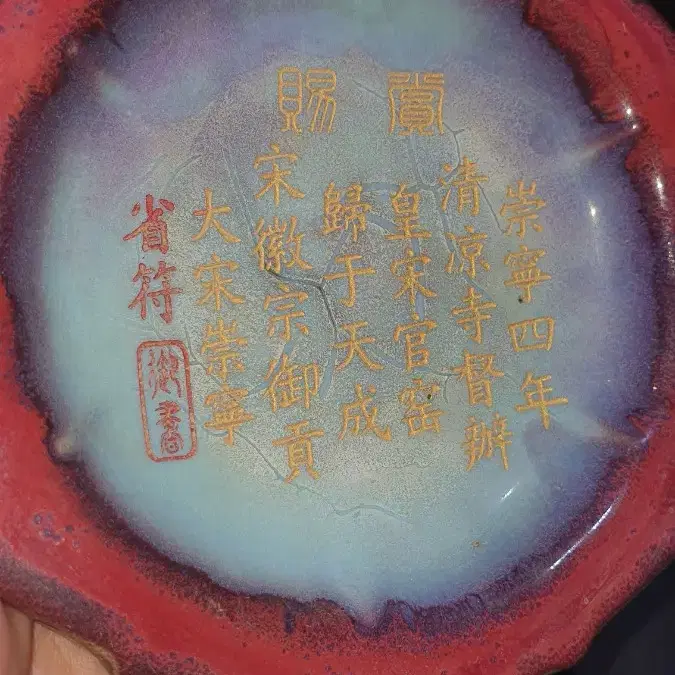 賞賜
崇寧四年
清凉寺督辦
皇宋官窑
歸于天成
宋徽宗御貢
大宋崇寧
省符